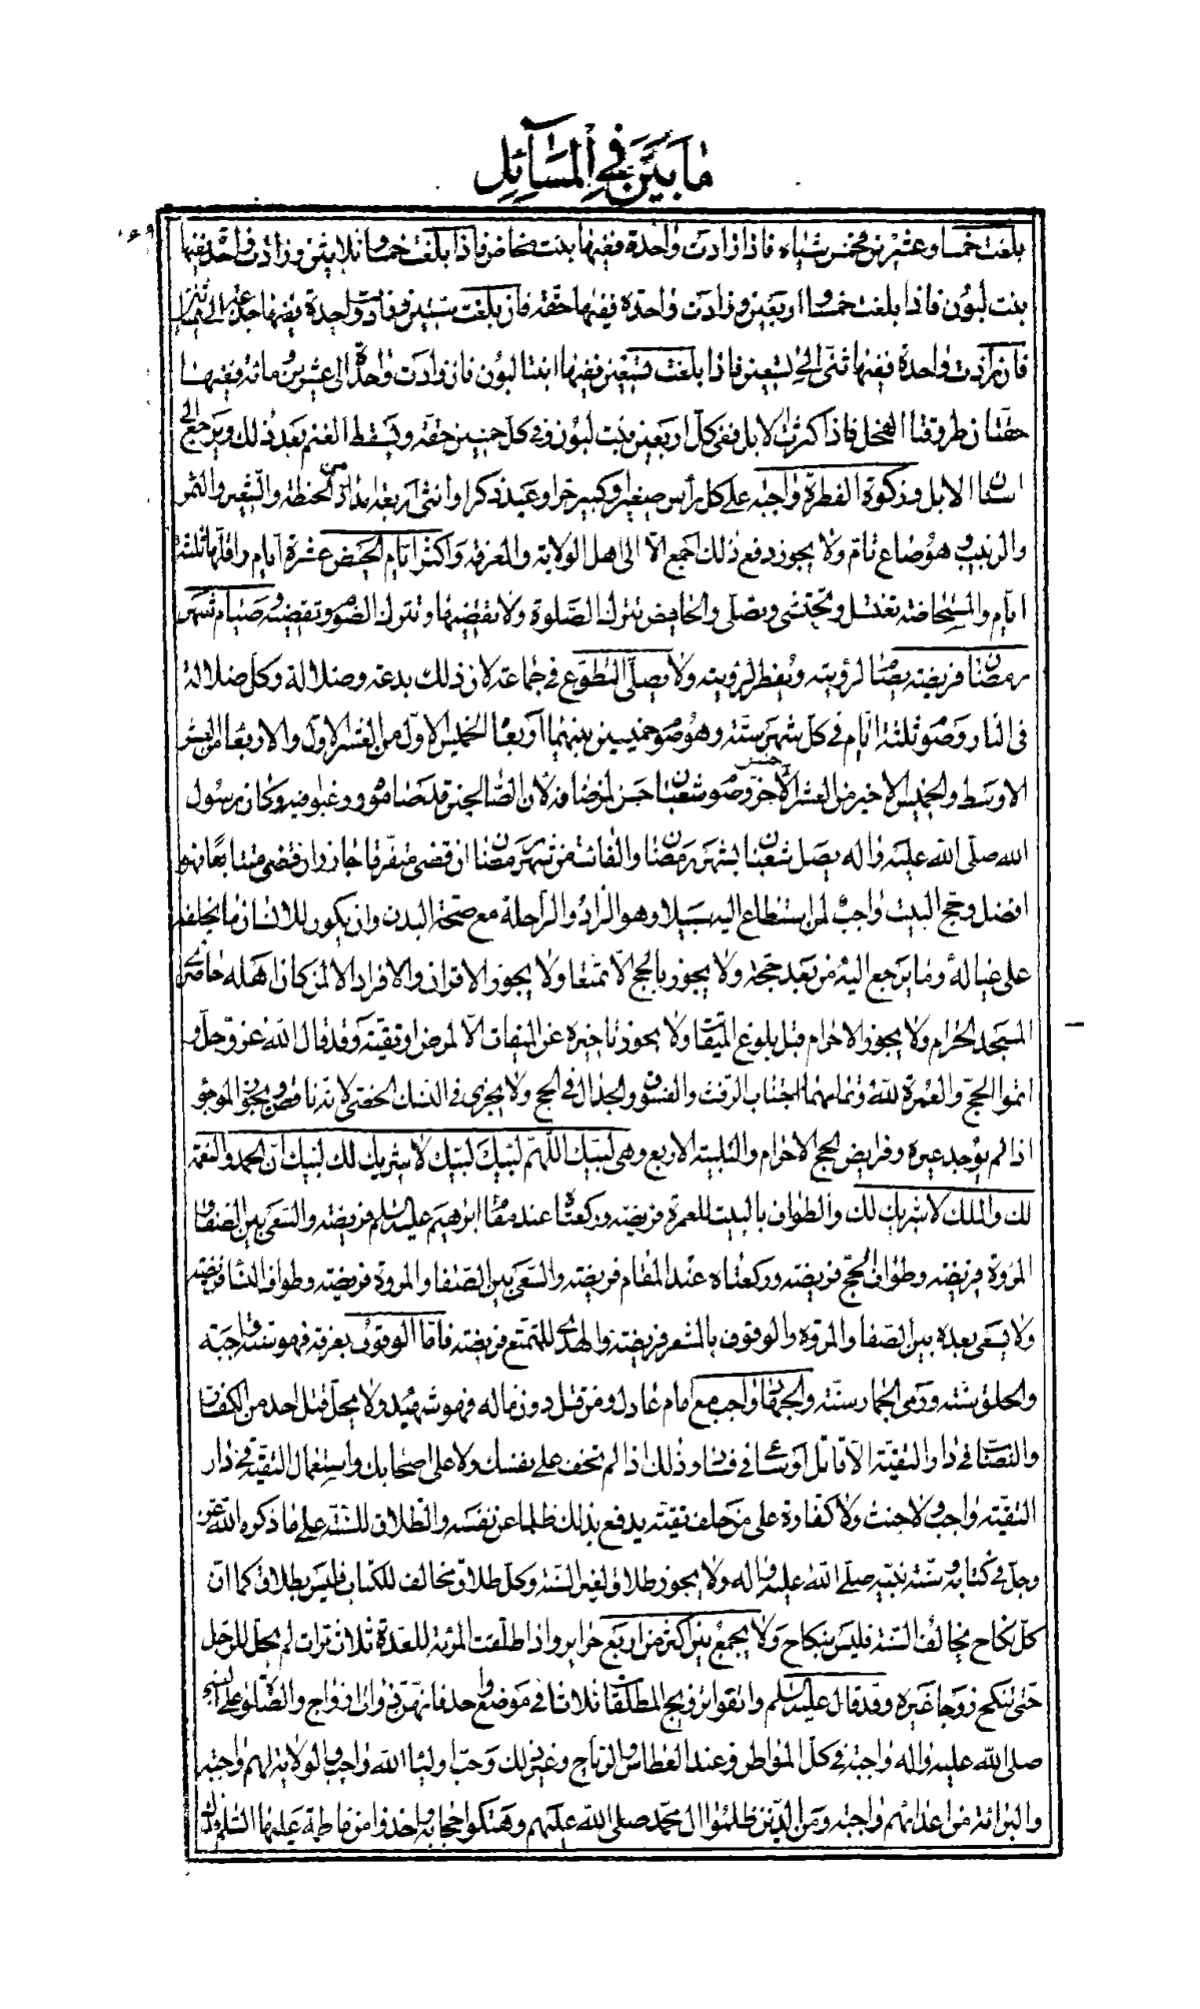 ما بين في المسائل
بلغت خمسا وعشرين فخمس شياه فاذا زادت واحدة ففيها بنت مخاض فاذا بلغت خمسا وثلاثين وزادت واحدة ففيها
بنت لبون فاذا بلغت خمسا واربعين وزادت واحدة ففيها حقه فان بلغت ستين وزادت واحدة ففيها جذعه الى
فان زادت واحدة ففيها ثنى الى تسعين فاذا بلغت تسعين ففيها ابنتا لبون فان زادت واحدة الى عشرين ومائة ففيها
حقتان طروقتا الفحل فاذا كثرت الابل ففي كل اربعين بنت لبون وفي كل خمسين حقه ويسقط الغنم بعد ذلك ويرجع الى
اسنان الابل وزكوة الفطرة واجبة على كل رأس صغير وكبير حر او عبد ذكر او انثى اربعة امداد من الحنطة والشعير والتمر
والزبيب وهو صاع تام ولا يجوز دفع ذلك اجمع الا الى اهل الولاية والمعرفة واكثر ايام الحيض عشرة ايام واقلها ثلثة
ايام والمستحاضة تغتسل وتحتشي وتصلى والحايض تترك الصلوة ولا تقضيها وتترك الصوم وتقضيه وصيام شهر
رمضان فريضة يصام لرؤيته ويفطر لرؤيته ولا يصلى التطوع في جماعة لان ذلك بدعة وضلالة وكل ضلالة
في النار وصوم ثلثة ايام في كل شهر سنة وهو صوم خميسين بينهما اربعاء الخميس الاول من العشر الاول والاربعاء من العشر
الاوسط والخميس الاخير من العشر الاخر وصوم شعبان حسن لمن صامه لان الصالحين قد صاموه ورغبوا فيه وكان رسول
الله صلى الله عليه واله يصل شعبان بشهر رمضان والفائت من شهر رمضان ان قضى متفرقا جاز وان قضى متتابعا فهو
افضل وحج البيت واجب لمن استطاع اليه سبيلا وهو الزاد والراحلة مع صحة البدن وان يكون للانسان ما يخلفه
على عياله وما يرجع اليه من بعد حجه ولا يجوز بالحج الا متمتعا ولا يجوز الاقران والافراد الا لمن كان اهله حاضرى
المسجد الحرام ولا يجوز الاحرام قبل بلوغ الميقات ولا يجوز تاخيره عن الميقات الا لمرض او تقية وقد قال الله عز وجل و
اتموا الحج والعمرة لله وتمامهما اجتناب الرفث والفسوق والجدال في الحج ولا يجزى في النسك الخصى لانه ناقص ويجوز الموجو
اذا لم يوجد غيره وفرايض الحج الاحرام والتلبية الاربع وهي لبيك اللهم لبيك لبيك لا شريك لك لبيك ان الحمد والنعمة
لك والملك لا شريك لك والطواف بالبيت للعمرة فريضه وركعتاه عند مقام ابرهيم عليه السلم فريضه والسعى بين الصفا و
المروة فريضه وطواف الحج فريضه وركعتاه عند المقام فريضه والسعى بين الصفا والمروة فريضه وطواف النساء فريضه
ولا يسعى بعده بين الصفا والمروة والوقوف بالمشعر فريضة والهدى للمتمتع فريضه فاما الوقوف بعرفة فهو سنة واجبة
والحلق سنة ورمى الجمار سنة والجهاد واجب مع امام عادل ومن قتل دون ماله فهو شهيد ولا يحل قتل احد من الكفار
والنصاب في دار التقية الا قاتل او ساع في فساد وذلك اذا لم تخف على نفسك ولا على اصحابك واستعمال التقية في دار
التقية واجب ولا حنث ولا كفارة على من حلف تقيه يدفع بذلك ظلما عن نفسه والطلاق للسنة على ما ذكره الله عز
وجل في كتابه وسنة نبيه صلى الله عليه واله ولا يجوز طلاق لغير السنة وكل طلاق مخالف للكتاب فليس بطلاق كما ان
كل نكاح يخالف السنة فليس بنكاح ولا يجمع بين اكثر من اربع حراير واذا طلقت المرئة للعدة ثلاث مرات لم يحل للرجل
حتى تنكح زوجا غيره وقد قال عليه السلم واتقوا تزويج المطلقات ثلاثا في موضع واحد فانهن ذوات ازواج والصلوة على النبي
صلى الله عليه واله واجبة في كل المواطن وعند العطاس والرياح وغير ذلك وحب اولياء الله واجب والولاية لهم واجبة
والبرائة من اعدائهم واجبة ومن الذين ظلموا ال محمد صلى الله عليهم وهتكوا حجابه واخذوا من فاطمة عليها السلم